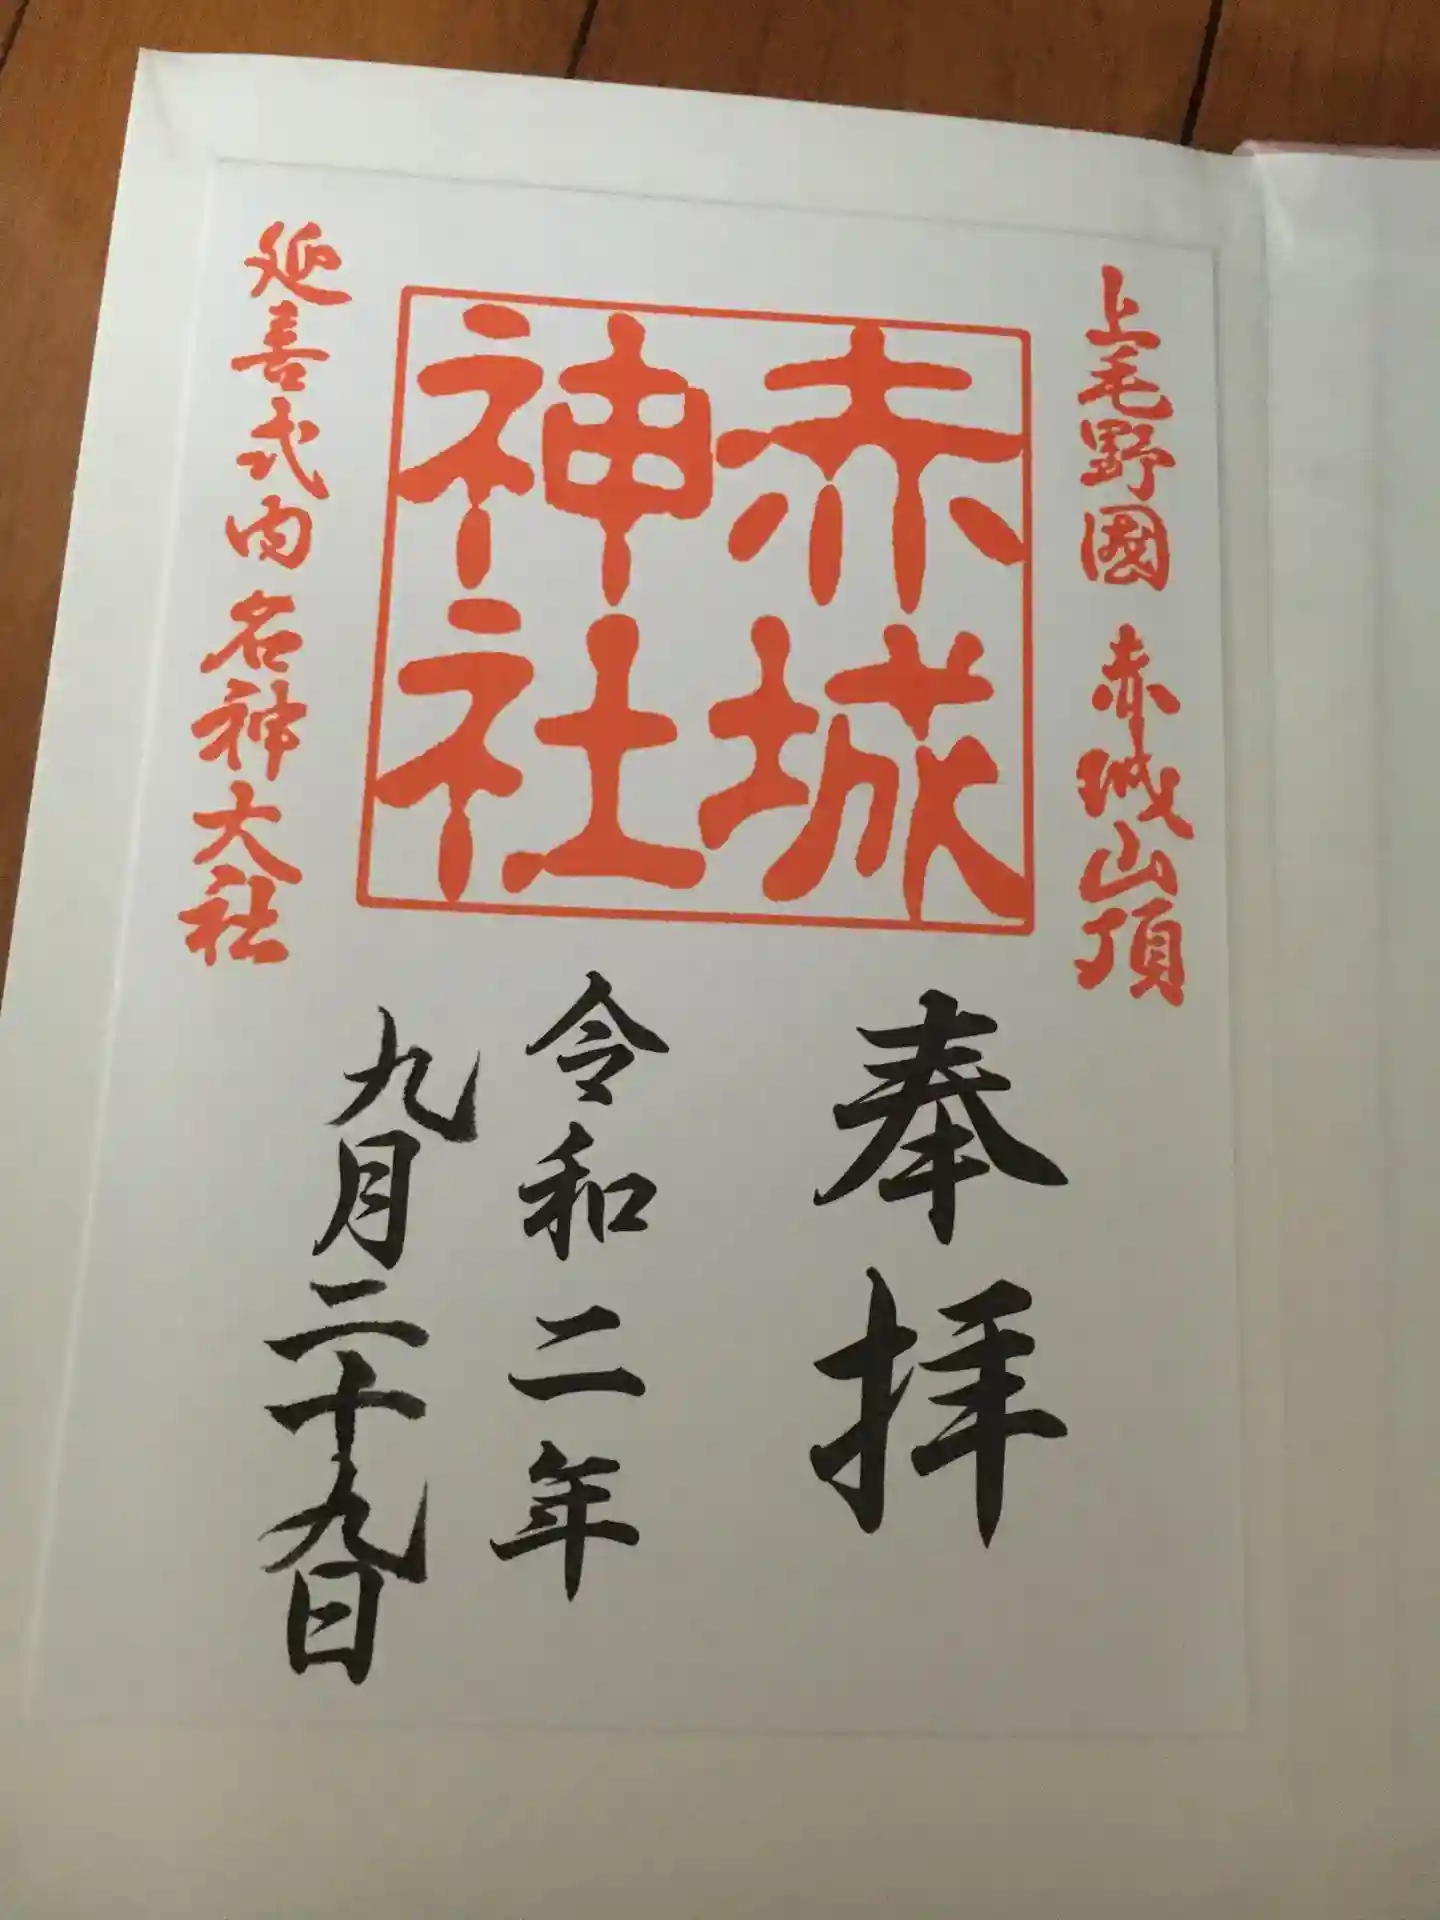 上毛野國 赤城山頂
赤城
神社
延喜式内 名神大社
奉拝
令和二年
九月二十九日